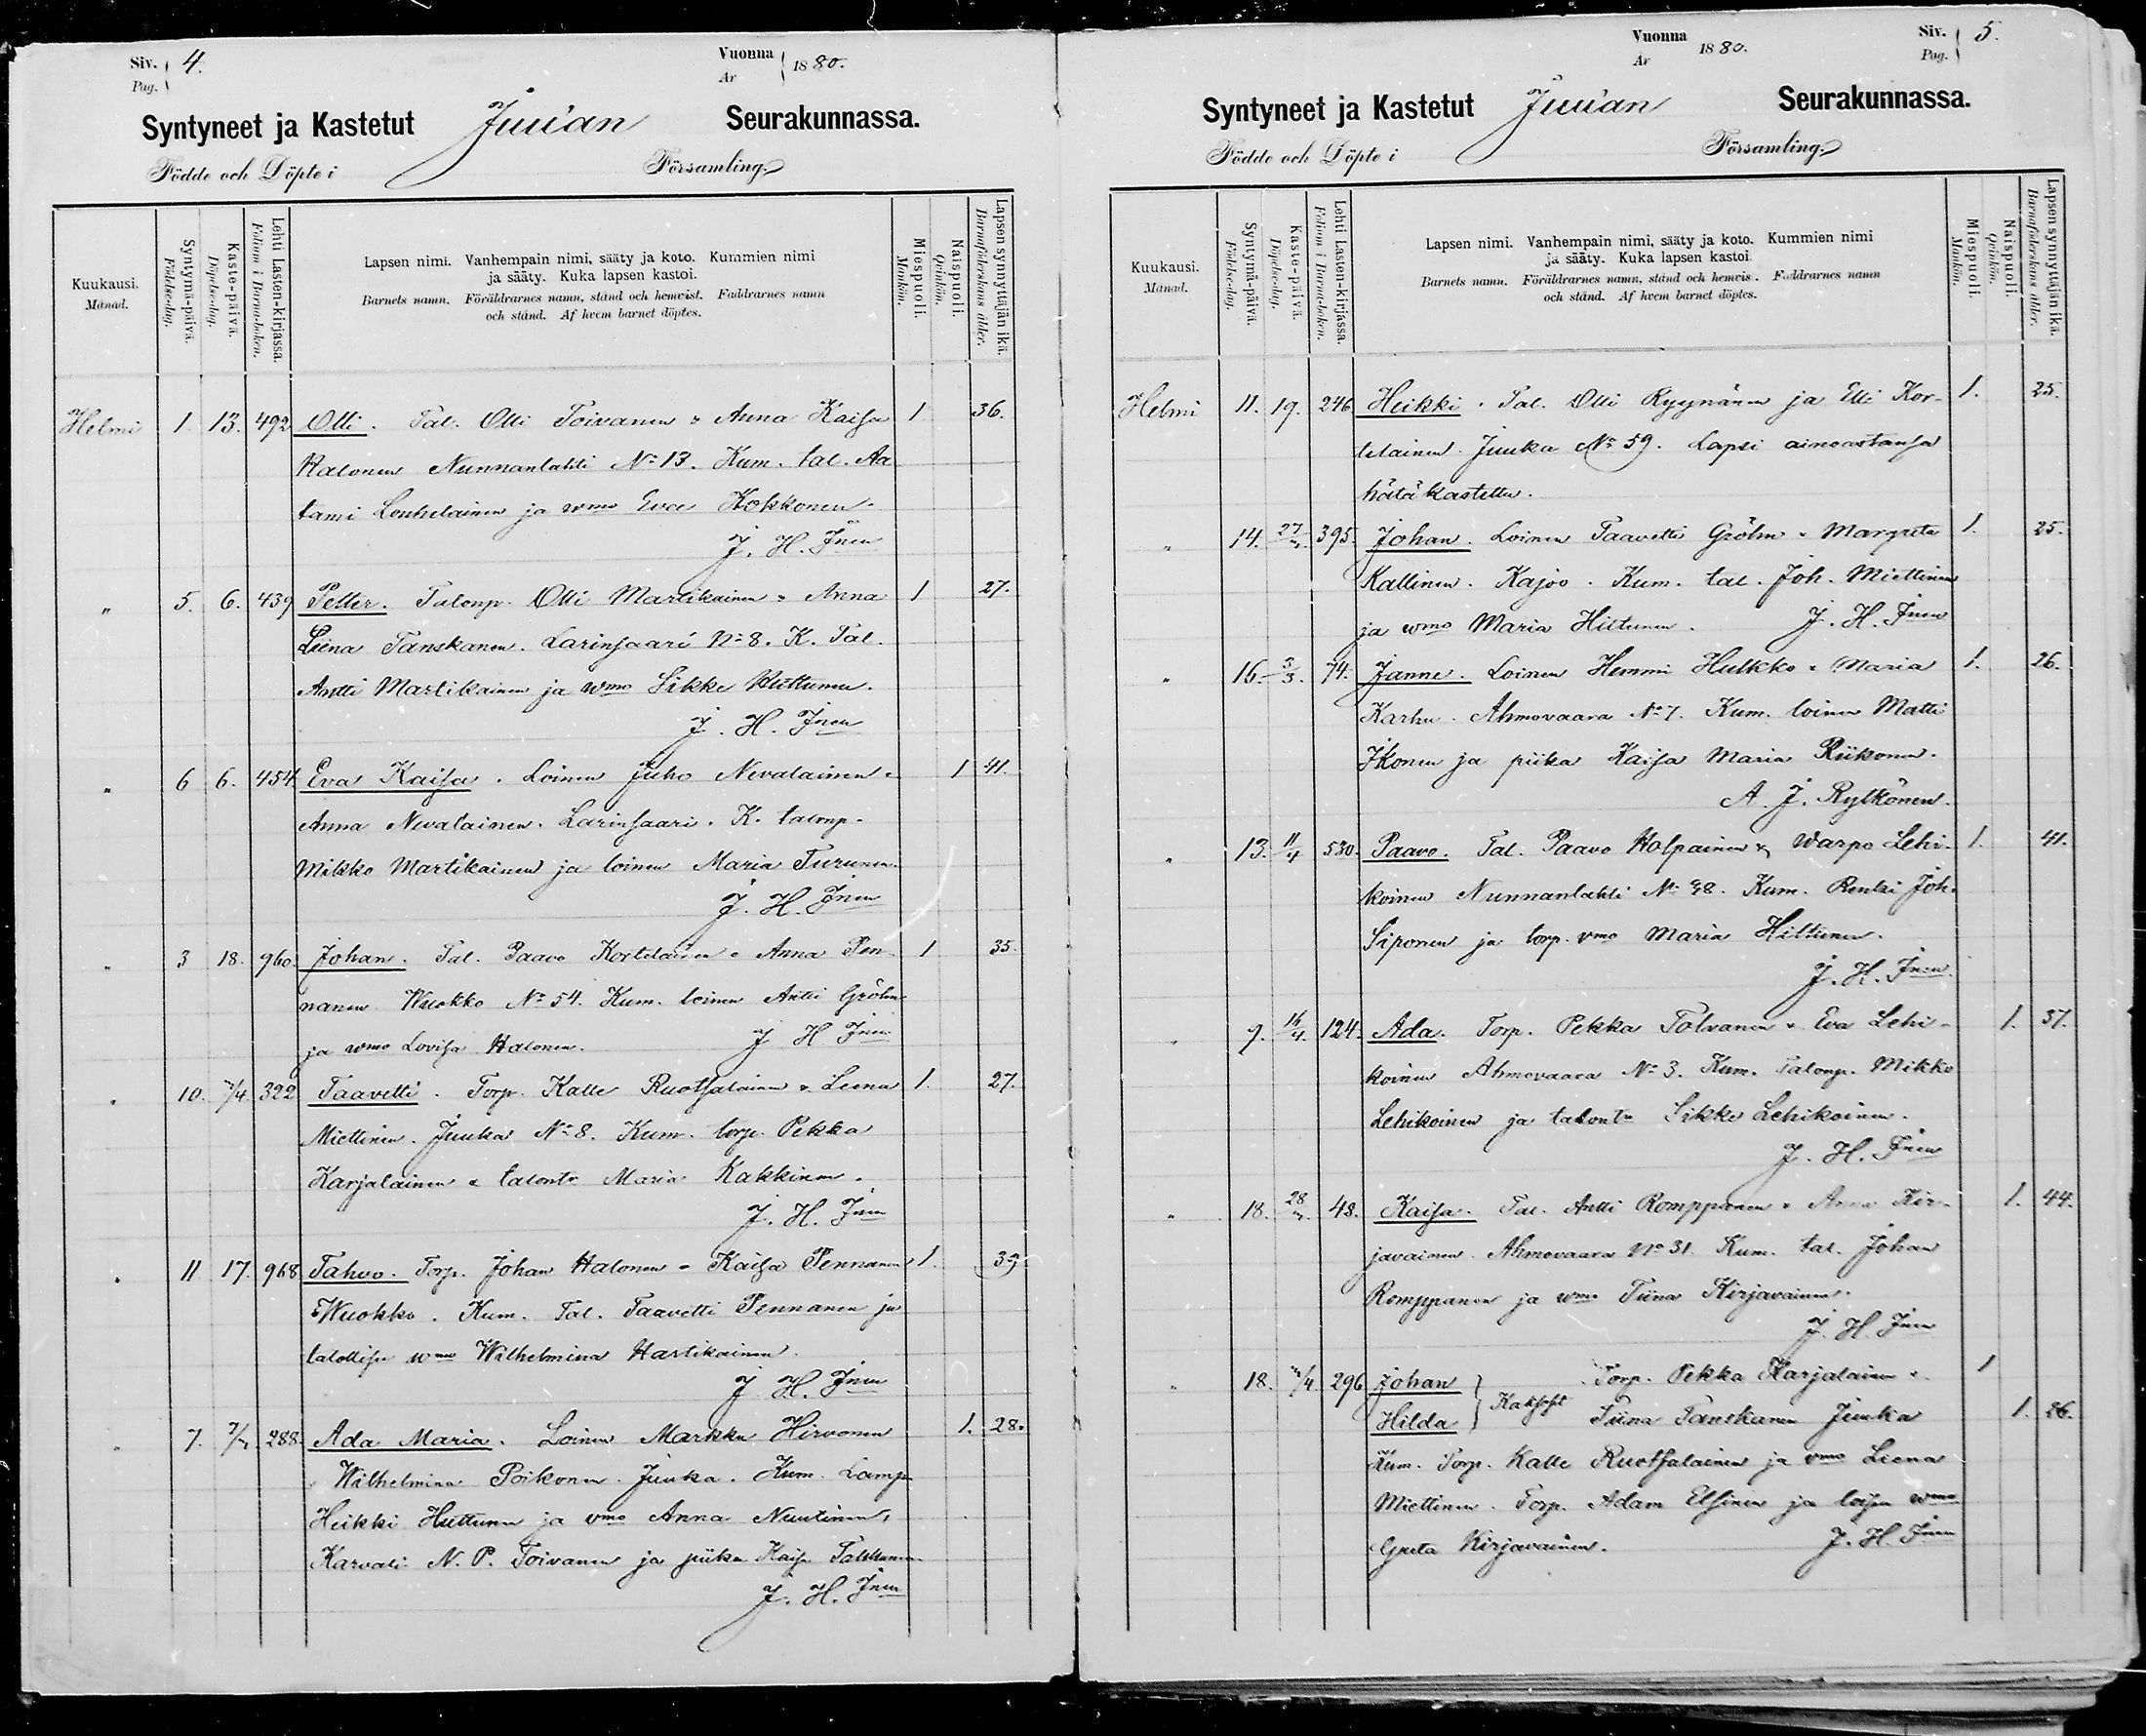 Siv. 4. Vuonna 1880.
Pag. Ar
Syntyneet ja Kastetut Juuan Seurakunnassa.
Födde och Döpte i Församling.
Kuukausi. Månad.
Syntymä-päivä. Födelse-dag.
Kaste-päivä. Döpelse-dag.
Lehti Lasten-kirjassa. Folium i Barna-boken.
Lapsen nimi. Vanhempain nimi, sääty ja koto. Kummien nimi
ja sääty. Kuka lapsen kastoi.
Barnets namn. Föräldrarnes namn, stånd och hemvist. Faddrarnes namn
och stånd. Af hvem barnet döptes.
Miespuoli. Mankön.
Naispuoli. Qvinkön.
Lapsen synnyttäjän ikä. Barnaföderskans ålder.
Helmi 1. 13. 492 Olli. Tal. Olli Toivanen & Anna Kaisa 1 36.
Halonen Nunnanlahti No 13. Kum. tal. Aa
tami Lonhelainen ja wmo Eva Kokkonen.
J. H. Jnen
" 5. 6. 439 Petter. Talonp. Olli Martikainen & Anna 1 27.
Liena Tanskanen. Larinsaari No 8. K. Tal.
Antti Martikainen ja wmo Sikke Huttunen.
J. H. Jnen
" 6 6. 454. Eva Kaisa. Loinen Juho Nevalainen & 1 41.
Anna Nevalainen. Larinsaari. K. talonp.
Mikko Martikainen ja loinen Maria Turunen.
J. H. Jnen
" 3 18. 960. Johan. Tal. Paavo Kortelainen & Anna Pen- 1 35.
nanen Wuokko No 54. Kum. loinen Antti Gröhn
ja wmo Lovisa Halonen. J H Jnen
" 10. /4. 322 Taavetti. Torp. Kalle Ruotsalainen & Leena 1. 27.
Miettinen. Juuka No 8. Kum. torp. Pekka
Karjalainen & talontr Maria Kakkinen.
J. H. Jnen
" 11 17. 968 Tahvo. Torp. Johan Halonen & Kaisa Pennanen 1. 39.
Wuokko. Kum. Tal. Taavetti Pennanen ja
talollisen wmo Wilhelmina Hartikainen.
J. H. Jnen
" 7. 288. Ada Maria. Loinen Markku Hirvonen 1. 28.
Wilhelmina Poikonen. Juuka. Kum. Lamp.
Heikki Huttunen ja vmo Anna Nuutinen,
Karvari N. P. Toivanen ja piika Kaisa
J. H. Jnen
Vuonna 1880. Siv. 5.
Ar Pag.
Syntyneet ja Kastetut Juuan Seurakunnassa.
Födde och Döpte i Församling.
Kuukausi. Månad.
Syntymä-päivä. Födelse-dag.
Kaste-päivä. Döpelse-dag.
Lehti Lasten-kirjassa. Folium i Barna-boken.
Lapsen nimi. Vanhempain nimi, sääty ja koto. Kummien nimi
ja sääty. Kuka lapsen kastoi.
Barnets namn. Föräldrarnes namn, stånd och hemvis . Faddrarnes namn
och stånd. Af hvem barnet döptes.
Miespuoli. Mankön.
Naispuoli. Qvinkön.
Lapsen synnyttäjän ikä. Barnaföderskans ålder.
Helmi 11. 19. 246 Heikki. Tal. Olli Ryynänen ja Elli Kor- 1. 25.
telainen. Juuka No 59. Lapsi ainoastansa
hätäkastettu.
" 14. 27 395. Johan. Loinen Taavetti Gröhn & Margreta 1. 25.
Kallinen. Kajoo. Kum. tal. Joh. Miettinen
ja wmo Maria Hiltunen. J. H. Jnen
" 16. 5/3. 74. Janne. Loinen Hemmi Hulkko & Maria 1. 26.
Karhu. Ahmovaara No 7. Kum. loinen Matti
Ikonen ja piika Kaisa Maria Riikonen.
A. J. Rytkönen.
" 13. 11/4 530. Paavo. Tal. Paavo Holpainen & Warpo Lehi- 1. 41.
koinen Nunnanlahti No 48. Kum. Renki Joh.
Siponen ja torp. vmo Maria Hiltunen.
J. H. Jnen
" 9. /4. 124. Ada. Torp. Pekka Tolvanen & Eva Lehi- 1. 37.
koinen Ahmovaara No 3. Kum. Talonp. Mikko
Lehikoinen ja talontr Sikke Lehikoinen.
J. H. Jnen
" 18. 28 48. Kaisa. Tal. Antti Romppanen & Anna Kir- 1. 44.
javainen. Ahmovaara No 31. Kum. tal. Johan
Romppanen ja wmo Tiina Kirjavainen.
J. H. Jnen
" 18. /4. 296 Johan Torp. Pekka Karjalainen & 1
Hilda Kaksoset Tiina Tanskanen Juuka 1. 26.
Kum. Torp. Kalle Ruotsalainen ja vmo Leena
Miettinen. Torp. Adam Elsinen ja loisen wmo
Greta Kirjavainen. J. H. Jnen